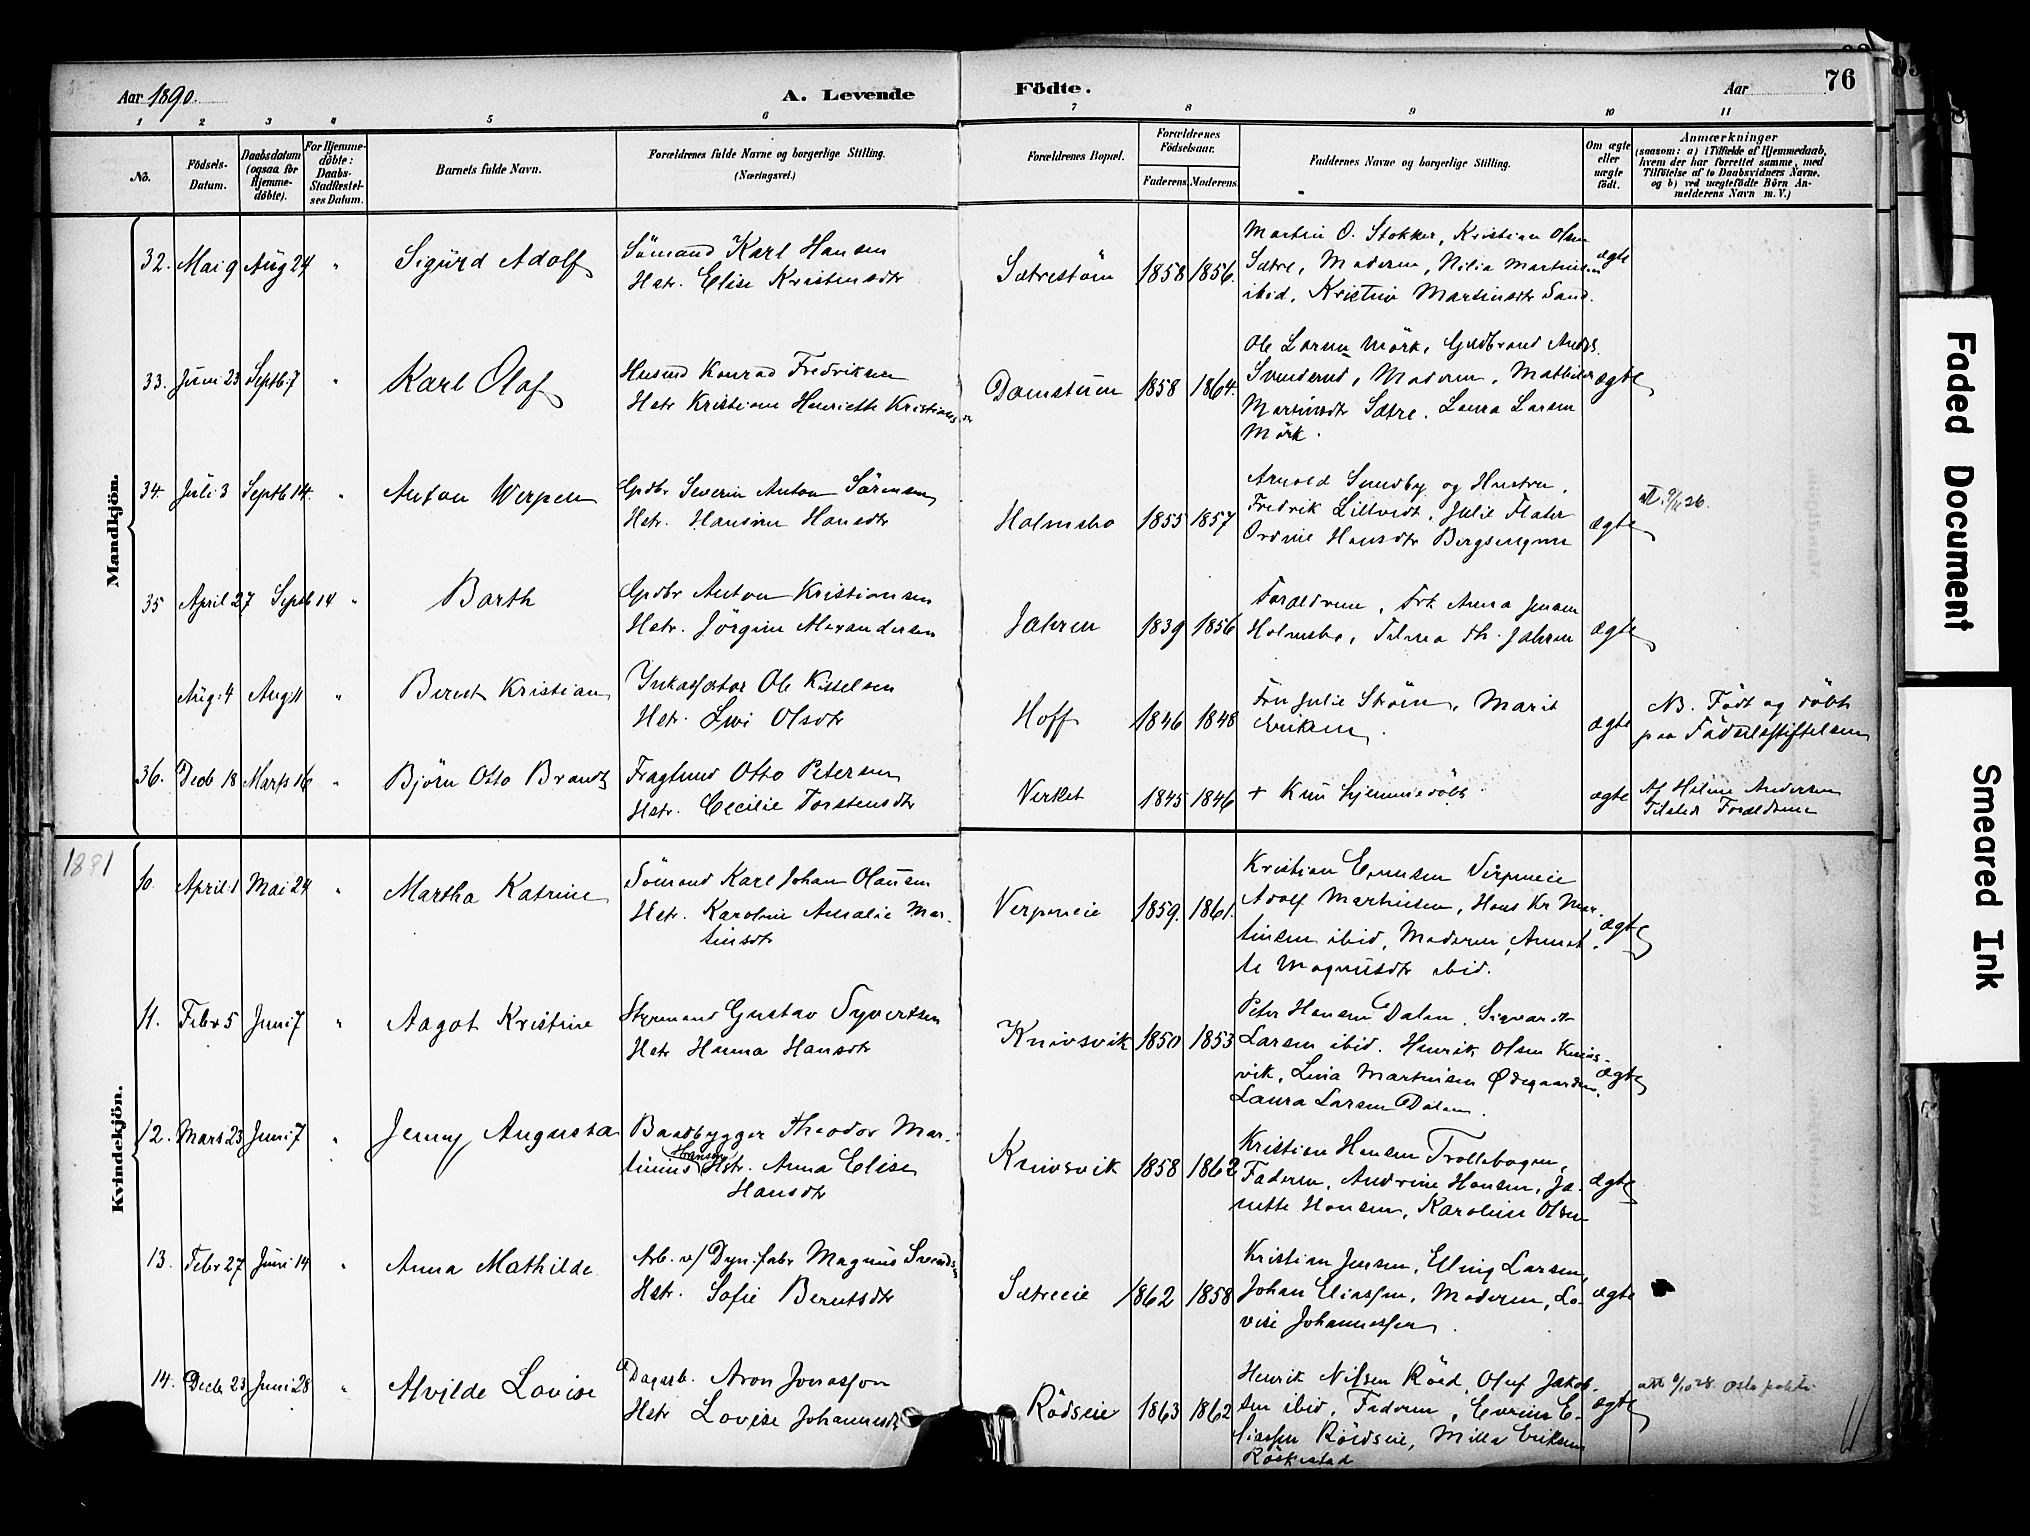 Aar 1890. A. Levende Födte. Aar 76
1 2 3 4 5 6 7 8 9 10 11
No. Födsels-Datum. Daabsdatum (ogsaa for Hjemme-döbte). For Hjemme-döbte: Daabs-Stadfæstel-ses Datum. Barnets fulde Navn. Forældrenes fulde Navne og borgerlige Stilling. (Næringsvei.) Forældrenes Bopæl. Forældrenes Födselsaar. Faderens Moderens Faddernes Navne og borgerlige Stilling. Om ægte eller uægte födt. Anmærkninger (saasom: a) i Tilfælde af Hjemmedaab, hvem der har forrettet samme, med Tilföielse af to Daabsvidners Navne. og b) ved uægtefödte Börn An-melderens Navn m. V.)
Mandkjön.
32. Mai 9 Aug 24 " Sigurd Adolf
Sömand Karl Hansen
Hstr. Elise Kristensdtr
Sætrestöm 1858 1856.
Martin O. Stokker, Kristian Olsen
Sætre, Moderen, Nilia Martinsen
ibid, Kristine Martinsdtr Sand.
ægte
33. Juni 23 Septb. 7 " Karl Olaf
Husmd Konrad Fredriksen
Hstr Kristiane Henriette Kristians dr
Damstuen 1858 1864.
Ole Larsen Mörk, Guldbrand Anders.
Svenderud, Moderen, Mathilde
Martinsdtr Sætre. Laura Larsen
Mörk.
ægte
34. Juli 3 Septb 14. " Anton Werpen
Gpdbr Severin Anton Sörensen
Hstr. Hansine Hansdtr
Holmsbo 1855 1857
Arnold Sundby og Hustru,
Fredrik Liltvedt, Julie Flater
Ordine Hansdtr Bergsengen
ægte
35 April 27 Septb 14 " Barth
Gpdbr Anton Kristiansen
Hstr. Jörgine Alexandersen
Jahren 1839 1856
Forældrene, Frk Anna Jensen
Holmsbo, Tilma Th. Jahren
ægte
Aug. 4 Aug. 11 " Berent Kristian
Inkassator Ole Kittelsen
Hstr. Livi Olsdtr
Hoff 1846 1848
Fru Julie Ström, Marit
Eriksen.
ægte
NB. Födt og döbt
paa Födselsstiftelsen
36. Decb 18 Marts 16 " Björn Otto Brandt
Fragtmd Otto Petersen
Hstr. Cecilie Torstensdtr
Verket 1845 1846
+ Kun hjemmedöbt
ægte
Af Helene Andersen
Tilstede Forældrene
1891
Kvindekjön.
10. April 1 Mai 24 " Martha Katrine
Sömand Karl Johan Olausen
Hstr. Karoline Amalie Mar-
tinsdtr
Verpeneie 1859. 1861.
Kristian Evensen Verpeneie
Adolf Martinsen, Hans Kr Mar-
tinsen ibid, Moderen, Annet-
te Magnusdtr ibid.
ægte
11. Febr 5 Juni 7 " Aagot Kristine
Styrmand Gustav Syvertsen
Hstr Hanna Hansdtr
Knivsvik 1850 1853
Peter Hansen Dalen, Sigvardt
Larsen ibid. Henrik Olsen Knivs-
vik, Lina Martinsen Ødegaarden,
Laura Larsen Dalen.
ægte
12. Marts 23 Juni 7 " Jenny Augusta
Baadbygger Theodor Mar-
tinius Hansen Hstr. Anna Elise
Hansdtr
Knivsvik 1858 1862
Kristian Hansen Trollebogen,
Faderen, Andrine Hansen, Ja-
nette Hansen, Karoline Olsen
ægte
13. Febr 27 Juni 14 " Anna Mathilde
Arb. v/ Dyn. fabr Magnus Svends
Hstr. Sofie Berntsdtr
Sætreeie 1862 1858
Kristian Jensen, Elling Larsen,
Johan Eliassen, Moderen, Lo-
vise Johannessen.
ægte
14. Decb 23 Juni 28 " Alvilde Lovise
Dagarb. Aron Jonassen
Hstr Lovise Johannesdtr
Rödseie 1863 1862
Henrik Nilsen Röed, Oluf Jakob-
sen ibid, Faderen, Evrine E-
liassen Röedseie, Milla Eriksen
Röskestad
ægte
Oslo politi
Faded Document
Smeared Ink